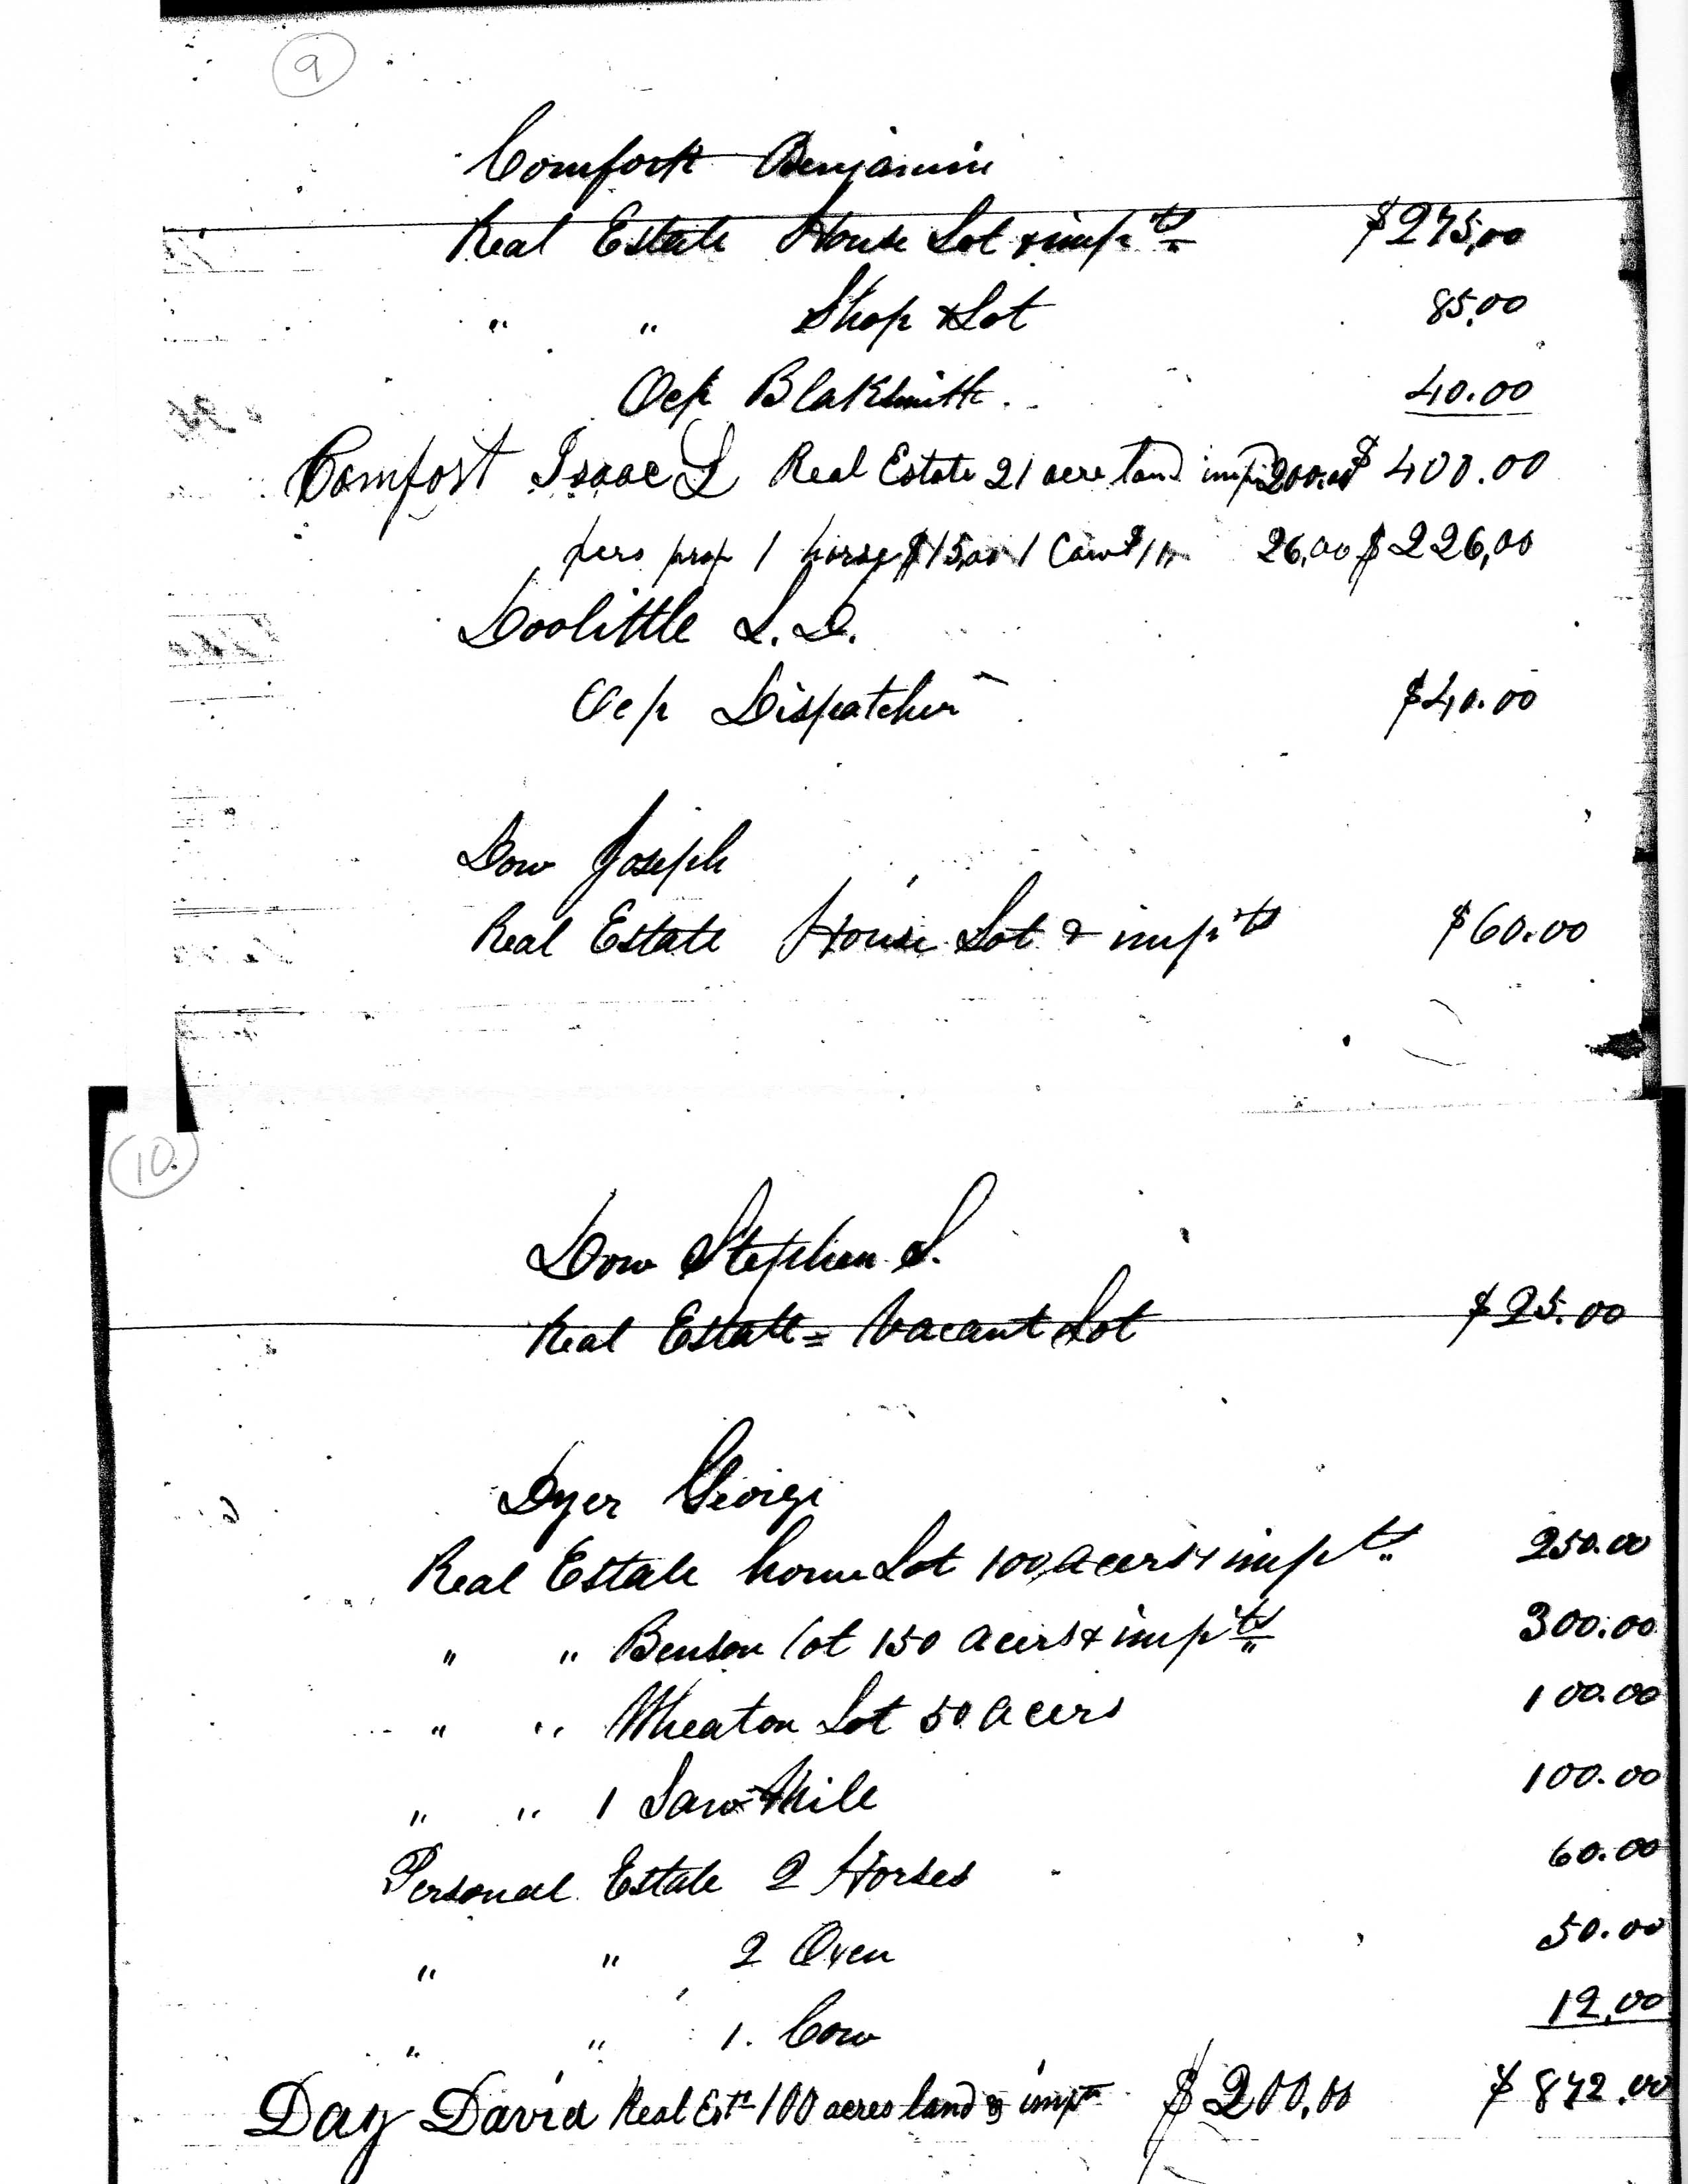 9
Comfort Benjamin
Real Estate House Lot & imp'ts $275,00
" " Shop & Lot 85,00
Ocp Blaksmith. 40.00
Comfort Isaac L Real Estate 21 acre land imp 200.00 $ 400.00
pers prop 1 horse $15,00 1 Cow $11 26,00 $226,00
Doolittle L. D.
Ocp Dispatcher $40.00
Dow Joseph
Real Estate House Lot & imp'ts $60.00
10.
Dow Stephen S.
Real Estate = Vacant Lot $25.00
Dyer George
Real Estate home Lot 100 Acers & imp'ts 250.00
" " Benson lot 150 Acers & imp'ts 300.00
" " Wheaton Lot 50 Acers 100.00
" " 1 Saw Mill 100.00
Personal Estate 2 Horses 60.00
" " 2 Oxen 50.00
" " 1. Cow 12,00
Day David Real Est 100 acres land & impts $200,00 $872.00